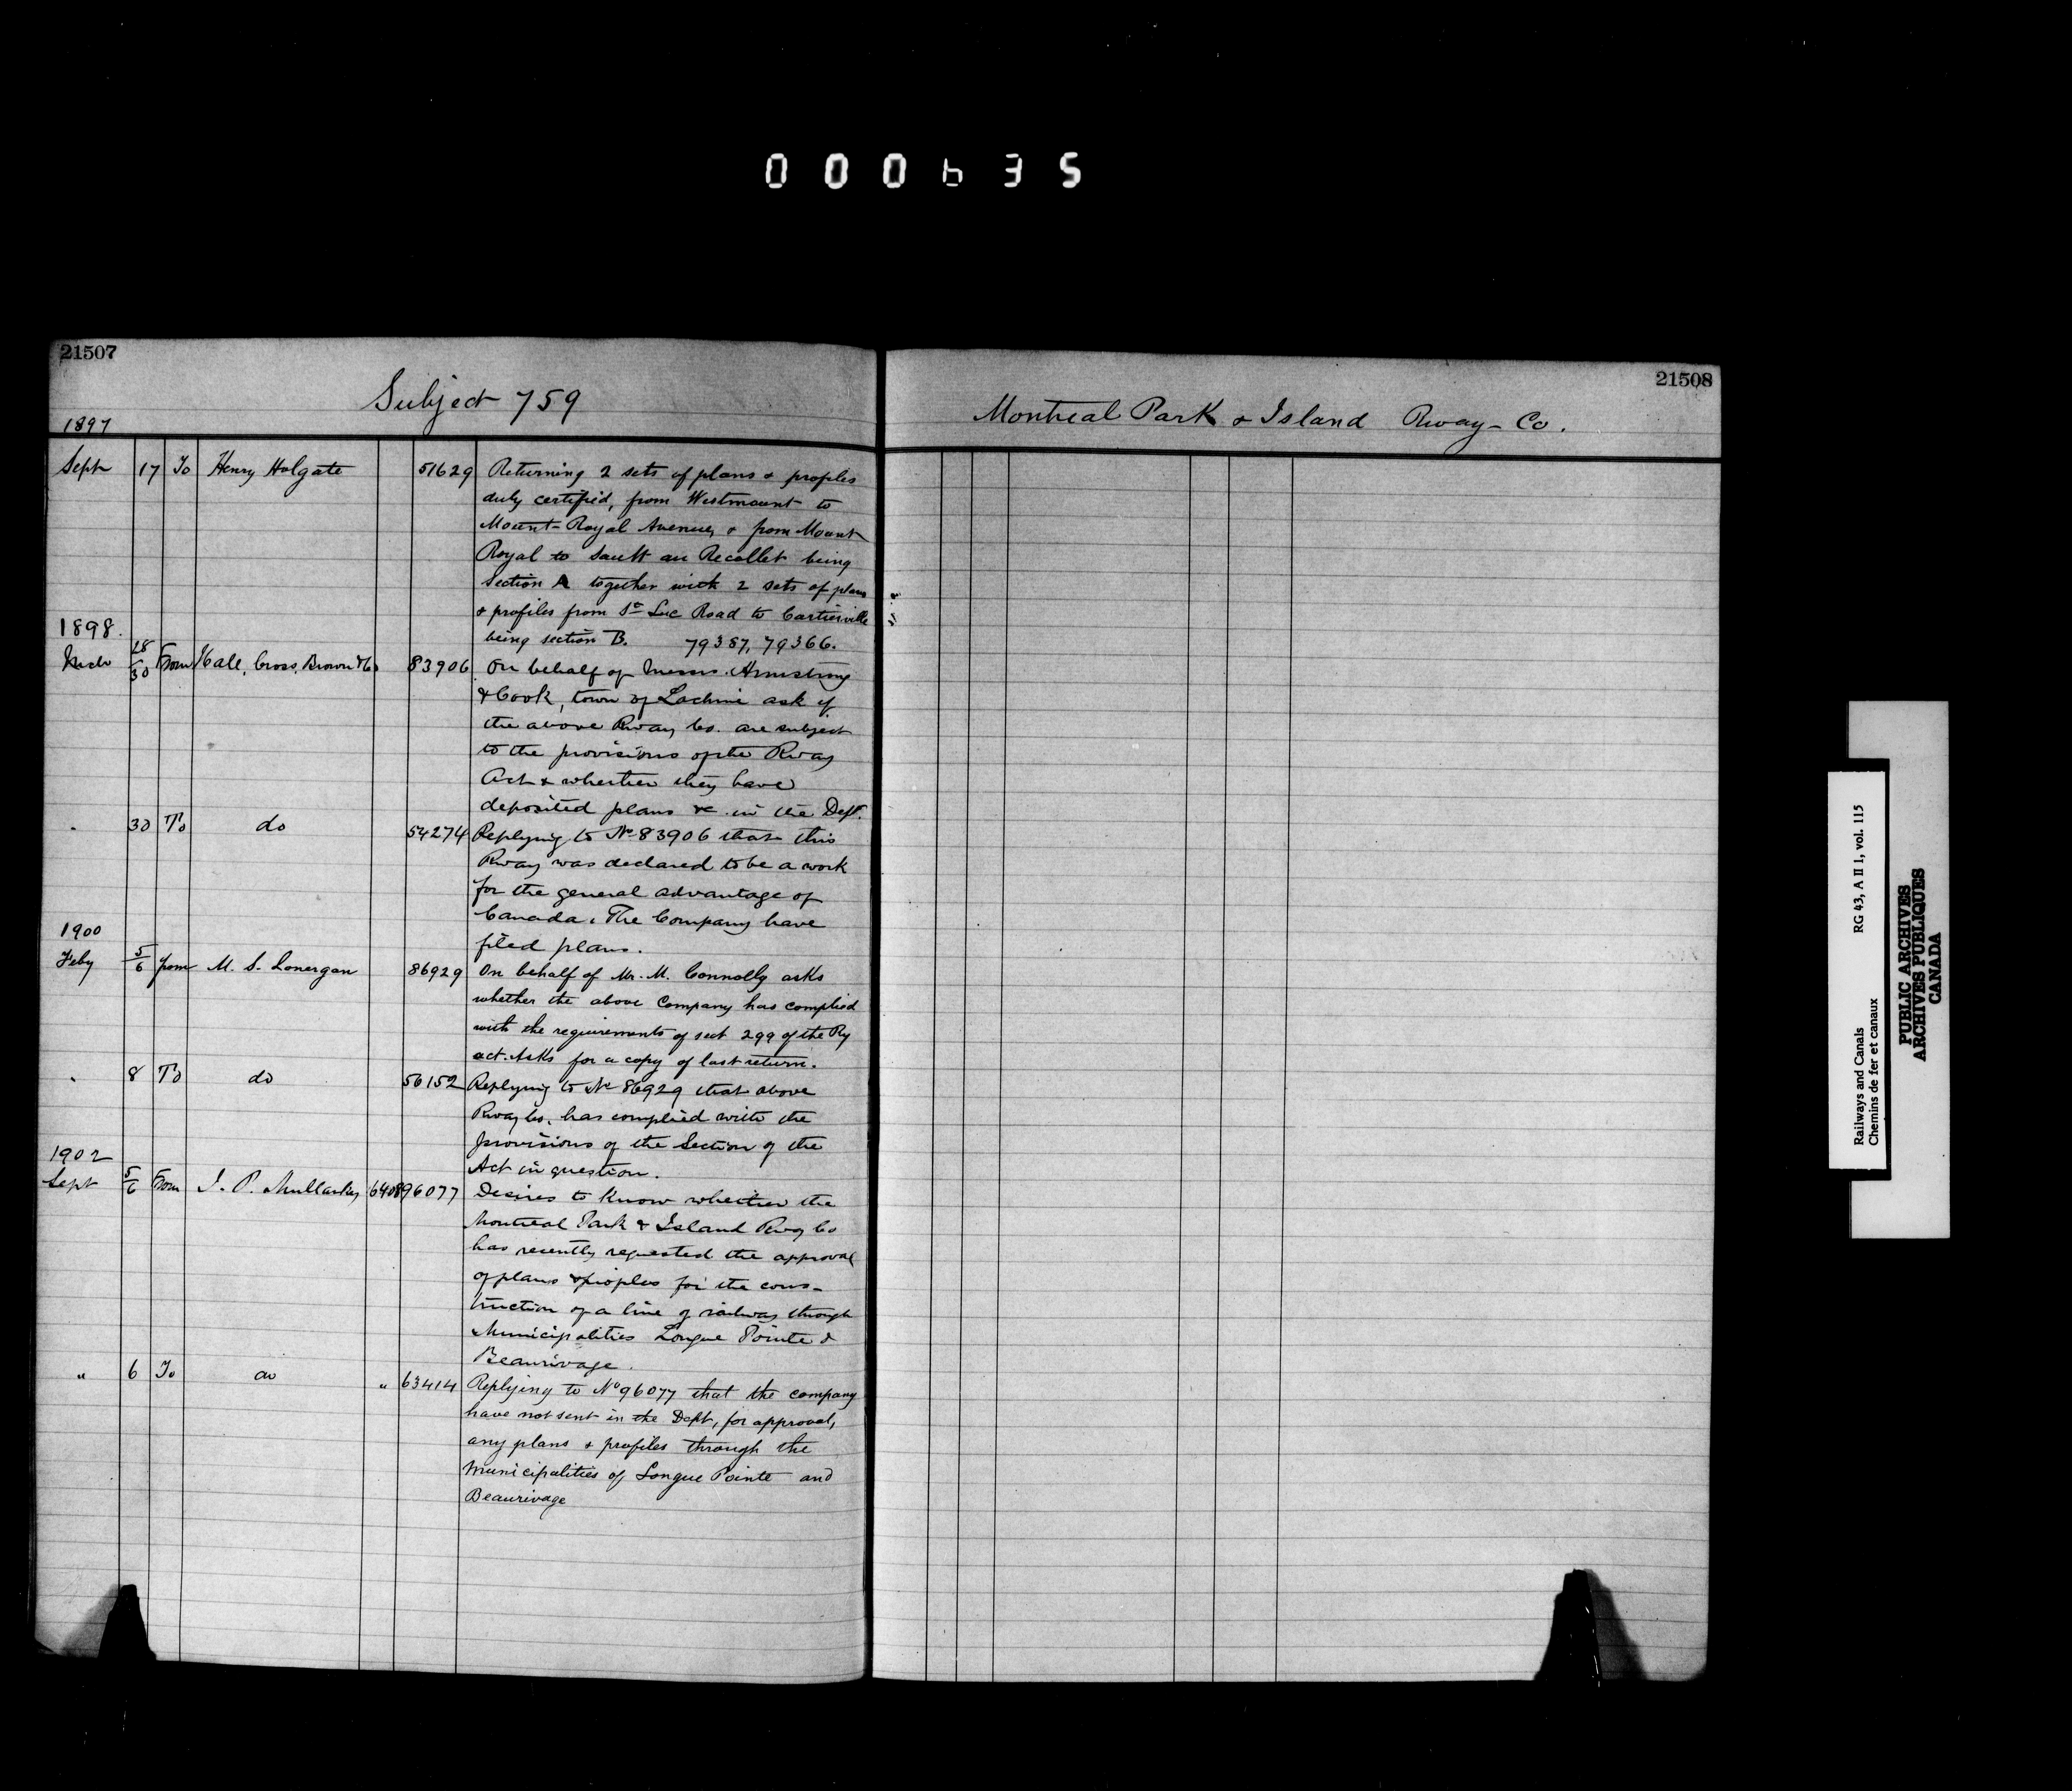 000635
21507
Subject 759
1897
Sept 17 To Henry Holgate 51629 Returning 2 sets of plans & profiles
duly certified, from Westmount to
Mount Royal Avenue, & from Mount
Royal to Sault au Recollet being
Section A together with 2 sets of plans
& profiles from St Luc Road to Cartierville
being section B. 79387, 79366.
1898.
Mch 28/30 From Hall, Cross, Brown & Co 83906 On behalf of Messrs. Armstrong
& Cook, town of Lachine ask if
the above Rway Co. are subject
to the provisions of the Rway
Act & whether they have
deposited plans &c. in the Dept.
30 To do 54274 Replying to No 83906 that this
Rway was declared to be a work
for the general advantage of
Canada. The Company have
filed plans.
1900
Feby 5/6 from M. S. Lonergan 86929 On behalf of Mr. M. Connolly asks
whether the above Company has complied
with the requirements of sect 299 of the Ry
act. Asks for a copy of last return.
8 To do 56152 Replying to No 86929 that above
Rway Co. has complied with the
provisions of the Section of the
Act in question.
1902
Sept 5/6 From J. P. Mullarkey 6408 96077 Desires to know whether the
Montreal Park & Island Rwy Co
has recently requested the approval
of plans & profiles for the cons-
truction of a line of railway through
Municipalities Longue Pointe &
Beaurivage.
" 6 To do " 63414 Replying to No 96077 that the company
have not sent in the Dept, for approval,
any plans & profiles through the
Municipalities of Longue Pointe and
Beaurivage
21508
Montreal Park & Island Rway Co.
Railways and Canals RG 43, A II 1, vol. 115
Chemins de fer et canaux
PUBLIC ARCHIVES
ARCHIVES PUBLIQUES
CANADA